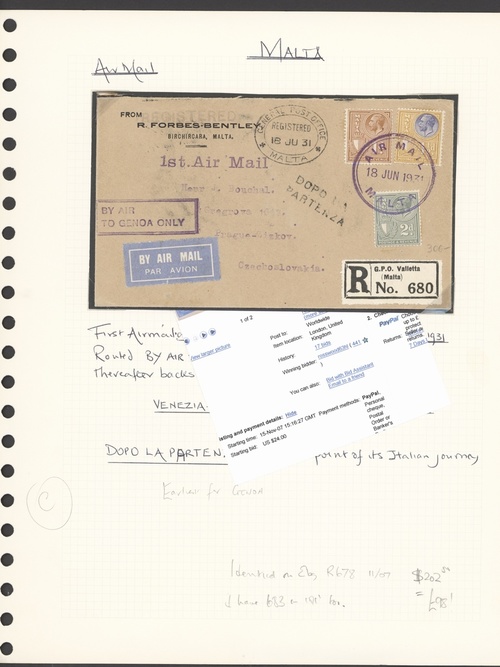 MALTA
Air Mail
FROM
R. FORBES-BENTLEY
BIRCHIRCARA, MALTA.
GENERAL POST OFFICE
REGISTERED
18 JU 31
MALTA
AIR MAIL
18 JUN 1931
MALTA
1st. Air Mail
DOPO LA
PARTENZA
BY AIR
TO GENOA ONLY
Czechoslovakia.
BY AIR MAIL
PAR AVION
R
G.P.O. Valletta
(Malta)
No. 680
300-
First Airmail
Routed BY AIR
1931
thereafter backs
VENEZIA.
DOPO LA PARTEN
point of its Italian journey
1 of 2
View larger picture
Post to:
Worldwide
Item location:
London, United
Kingdom
History:
17 bids
Winning bidder:
You can also:
Bid with Bid Assistant
Email to a friend
PayPal
Returns:
7 Days
isting and payment details: Hide
Starting time: 15-Nov-07 15:16:27 GMT
Starting bid: US $24.00
Payment methods: PayPal,
Personal
cheque,
Postal
Order or
Banker's
C
Earlier for Genoa
Identical on Ebay R678 11/07
$202.50
I have 683 in
= £98!